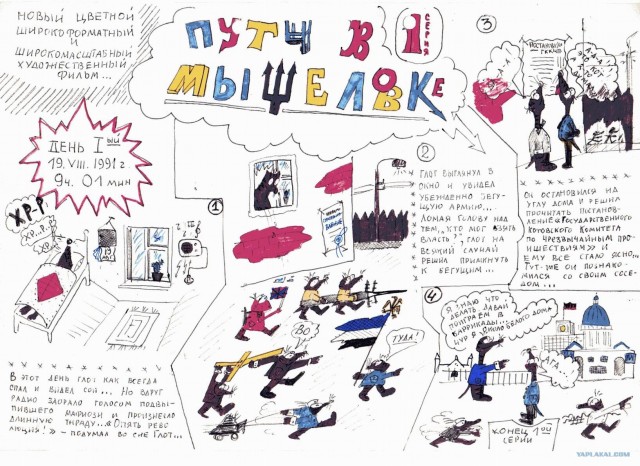 НОВЫЙ ЦВЕТНОЙ
ШИРОКОФОРМАТНЫЙ
И
ШИРОКОМАСШТАБНЫЙ
ХУДОЖЕСТВЕННЫЙ
ФИЛЬМ...
ПУТЧ В
МЫШЕЛОВКЕ
1 СЕРИЯ
ДЕНЬ Iый
19. VIII. 1991 г.
9ч. 01 мин
1
ХР-Р
ХР...Р
ХР...
В ЭТОТ ДЕНЬ ГЛОТ КАК ВСЕГДА
СПАЛ И ВИДЕЛ СОН... НО ВДРУГ
РАДИО ЗАОРАЛО ГОЛОСОМ ПОДВЫ-
ПИВШЕГО И ПРОИЗНЕСЛО
ДЛИННУЮ ТИРАДУ... «ОПЯТЬ РЕВО
ЛЮЦИЯ!» - ПОДУМАЛ ВО СНЕ ГЛОТ...
2
ГЛОТ ВЫГЛЯНУЛ В
ОКНО И УВИДЕЛ
УБЕЖДЕННО БЕГУ-
ЩУЮ АРМИЮ...
ЛОМАЯ ГОЛОВУ НАД
ТЕМ, „КТО МОГ ВЗЯТЬ
ВЛАСТЬ", ГЛОТ НА
ВСЯКИЙ СЛУЧАЙ
РЕШИЛ ПРИМКНУТЬ К
БЕГУЩИМ...
ВО!
ТУДА!
3
ПОСТАНОВЛ
ГККЧП
ОН ОСТАНОВИЛСЯ НА
УГЛУ ДОМА И РЕШИЛ
ПРОЧИТАТЬ ПОСТАНОВ-
ЛЕНИЕ «ГОСУДАРСТВЕННОГО
КОТОВСКОГО КОМИТЕТА
ПО ЧРЕЗВЫЧАЙНЫМ ПРО-
ИШЕСТВИЯМ»
ЕМУ ВСЁ СТАЛО ЯСНО...
ТУТ-ЖЕ ОН ПОЗНАКО-
МИЛСЯ СО СВОИМ СОСЕ-
ДОМ...
4
Я ЗНАЮ ЧТО
ДЕЛАТЬ ДАВАЙ
ПОИГРАЕМ В
БАРРИКАДЫ...
ЧУР У БЕЛОГО ДОМА
АГА
КОНЕЦ 1ОЙ
СЕРИИ
YAPLAKAL.COM